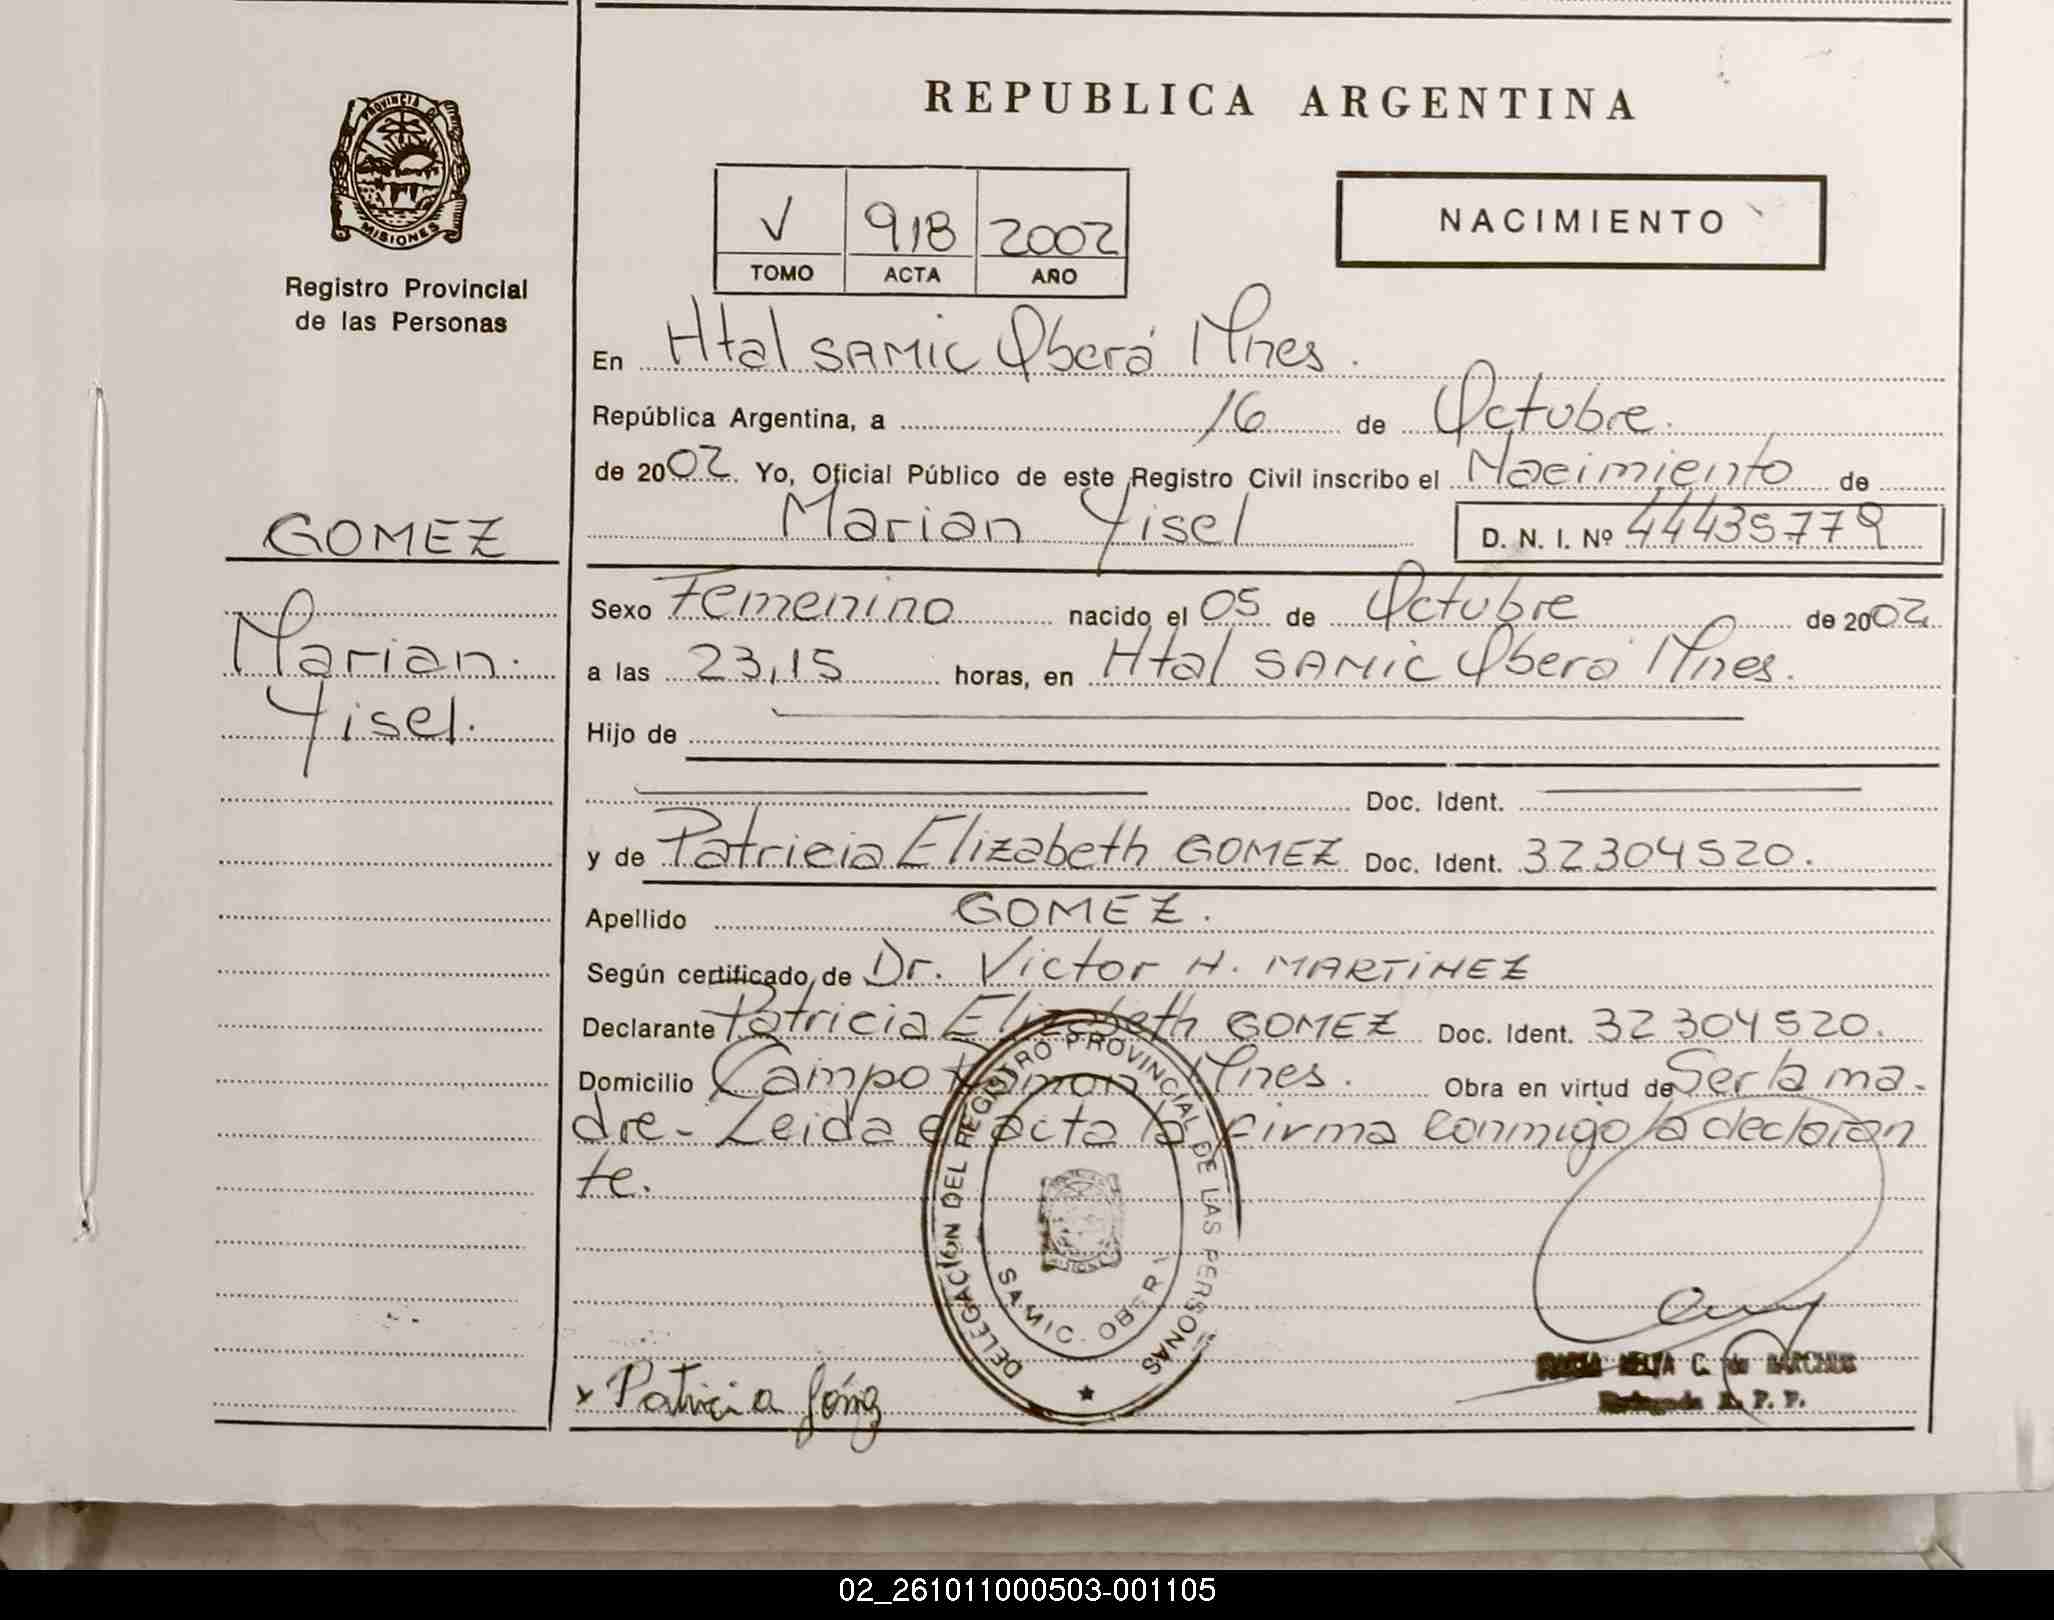 REPUBLICA ARGENTINA
PROVINCIA DE
MISIONES
Registro Provincial
de las Personas
V 918 2002
TOMO ACTA AÑO
NACIMIENTO
En Htal SAMIC Oberá Mnes.
República Argentina, a 16 de Octubre.
de 2002. Yo, Oficial Público de este Registro Civil inscribo el Nacimiento de
Marian Yisel D. N. I. Nº 44435779
GOMEZ
Marian.
Yisel.
Sexo Femenino nacido el 05 de Octubre de 2002
a las 23,15 horas, en Htal SAMIC Oberá Mnes.
Hijo de
Doc. Ident.
y de Patricia Elizabeth GOMEZ Doc. Ident. 32304520.
Apellido GOMEZ.
Según certificado de Dr. Victor H. MARTINEZ
Declarante Patricia Elizabeth GOMEZ Doc. Ident. 32304520.
Domicilio Campo Ramon Mnes. Obra en virtud de Ser la ma-
dre- Leida el acta la firma conmigo la declaran
te.
DELEGACIÓN DEL REGISTRO PROVINCIAL DE LAS PERSONAS
SAMIC. OBER
MISIONES
x Patricia Gómez
C. de
R. P. P.
02_261011000503-001105